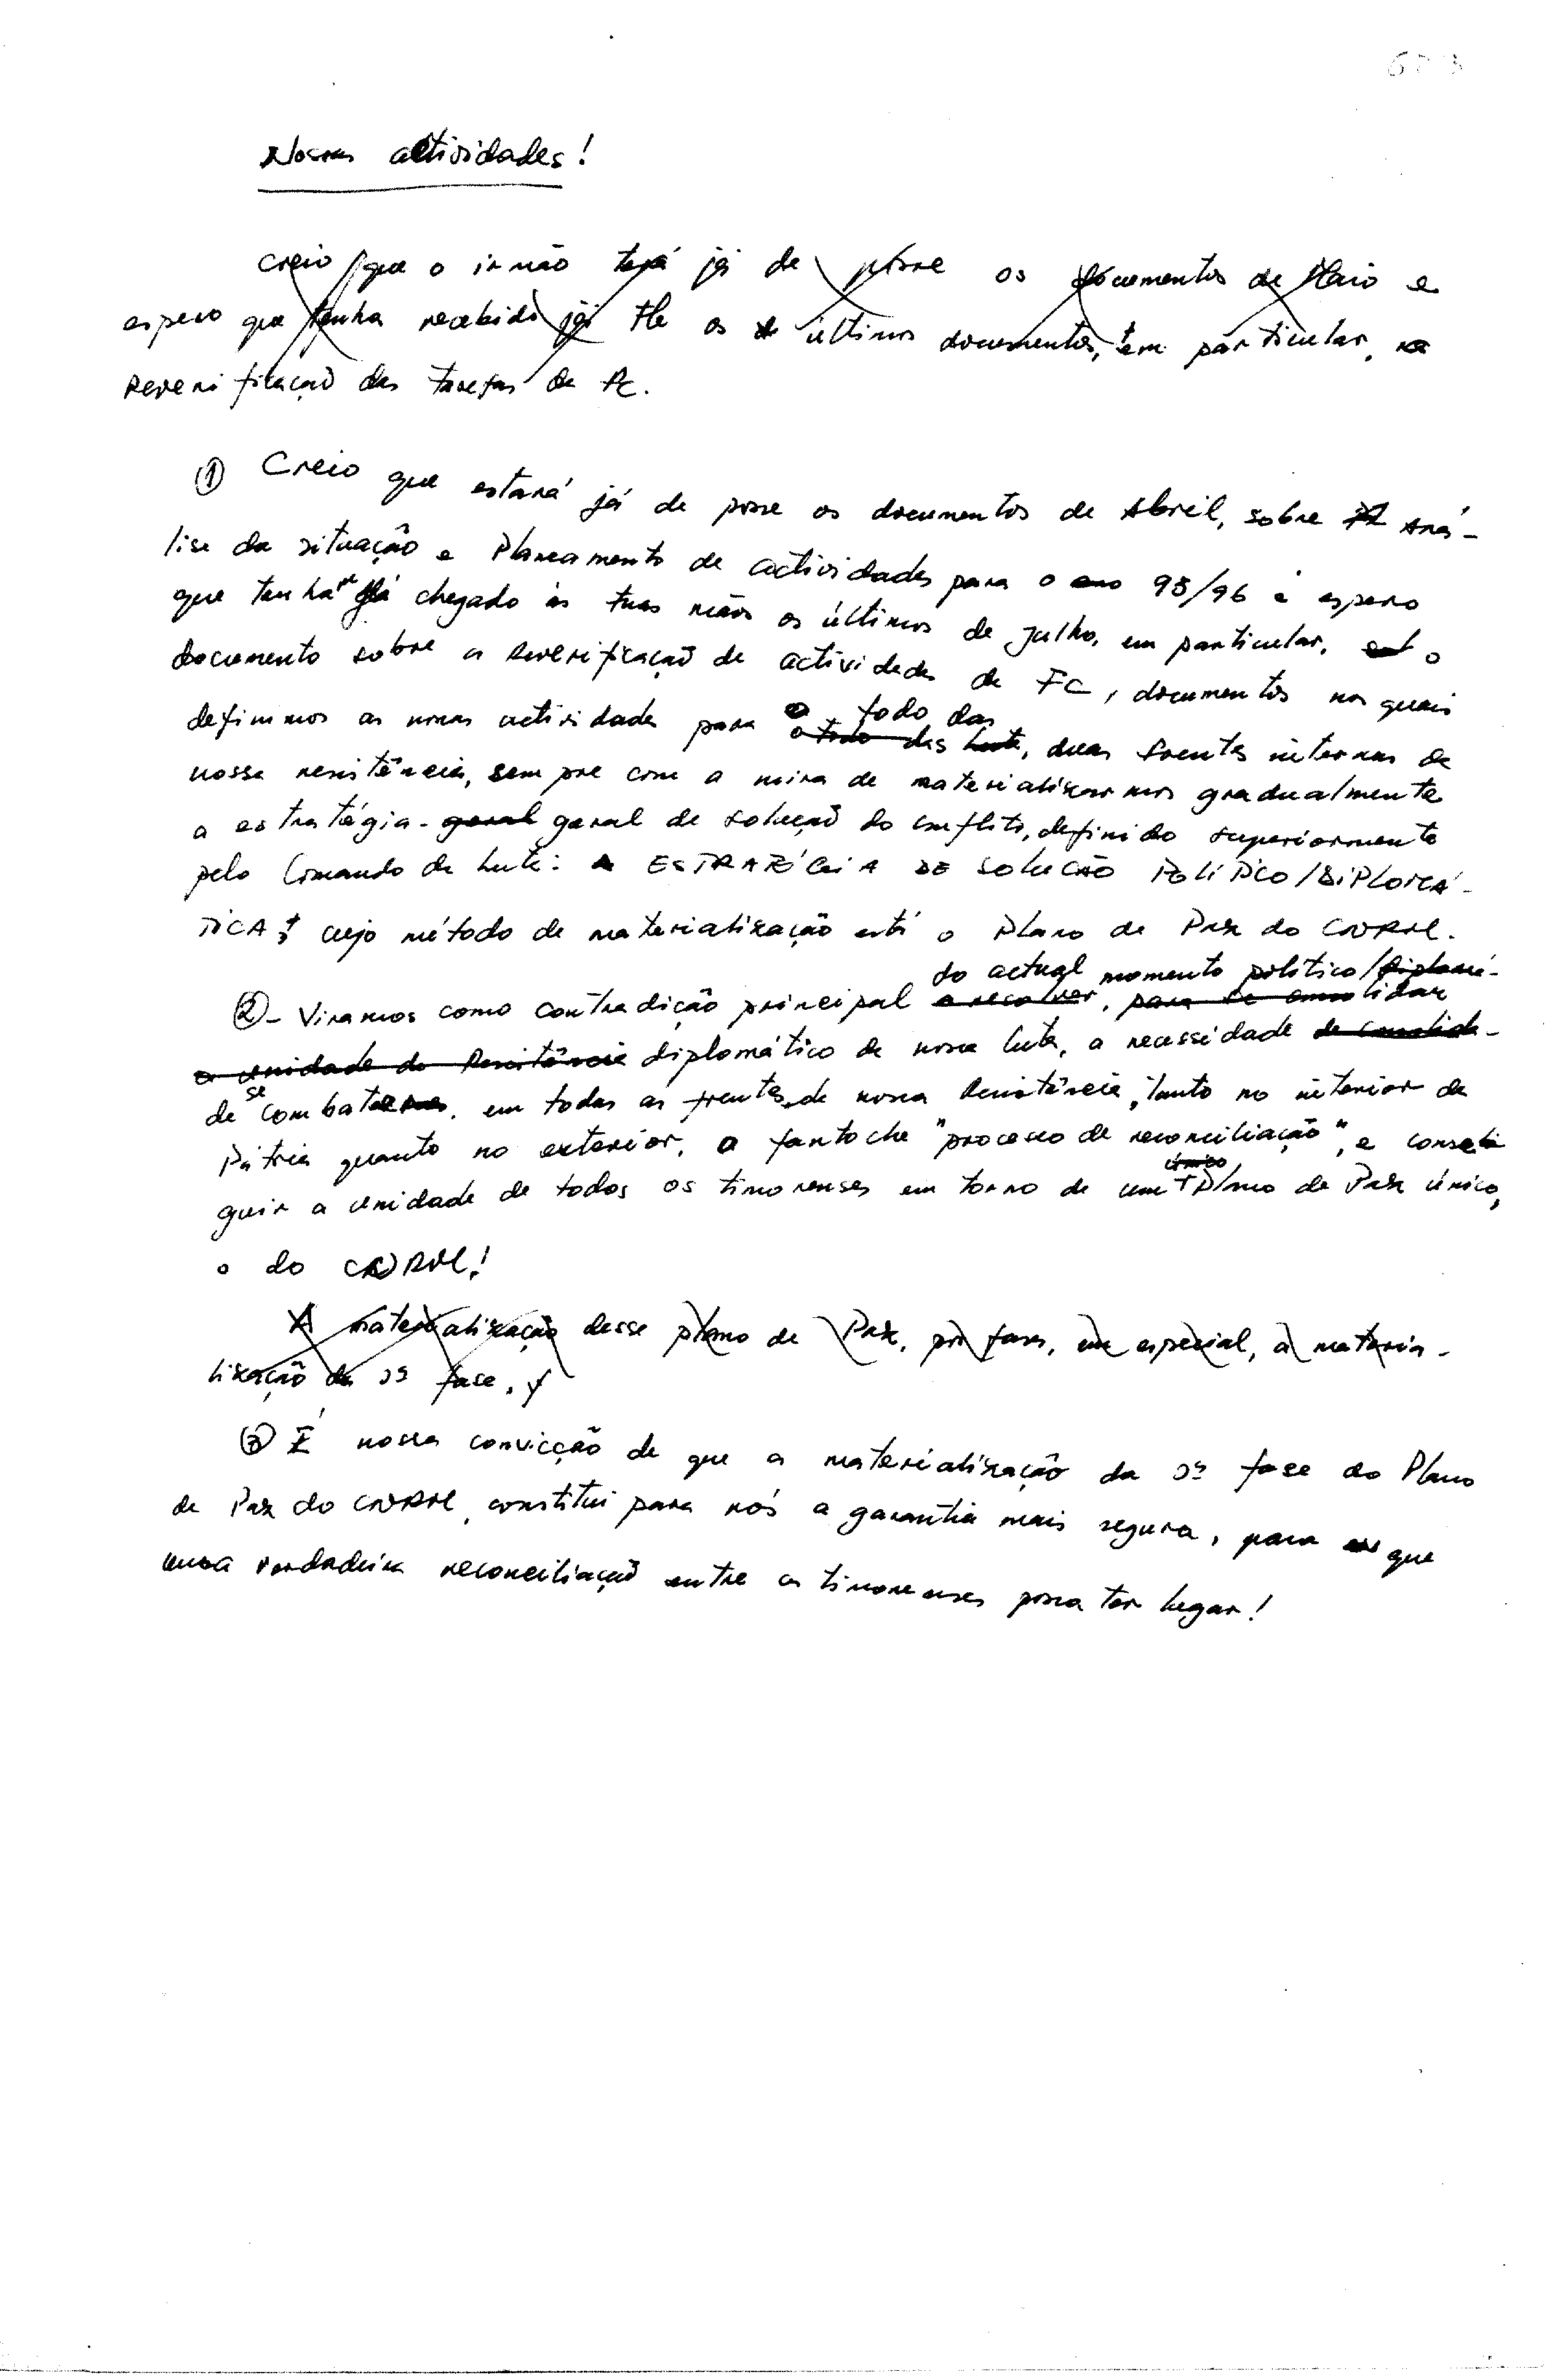 Nossas actividades!
Creio que o irmão terá já de posse os documentos de Maio e
espero que tenha recebido já os últimos documentos, em particular, a
Reverificação das tarefas da FC.
① Creio que estará já de posse os documentos de Abril, sobre Aná-
lise da situação e Planeamento de actividades para o ano 95/96 e espero
que tenham já chegado às tuas mãos os últimos de Julho, em particular, o
documento sobre a Reverificação de actividades da FC, documentos nos quais
definimos as novas actividades para o todo das
o todo das luta, duas frentes internas da
nossa resistência, sempre com a mira de materializarmos gradualmente
a estratégia geral geral de solução do conflito, definido superiormente
pelo Comando da Luta: A ESTRATÉGIA DE SOLUÇÃO POLÍTICO/DIPLOMÁ-
TICA, cujo método de materialização está o Plano de Paz do CNRM.
do actual momento político/diplomá-
②- Viramos como contradição principal a resolver, para se consolidar
a unidade da Resistência diplomático da nossa luta, a necessidade de consolida-
de se combater, em todas as frentes da nossa Resistência, tanto no interior da
Pátria quanto no exterior, o fantoche "processo de reconciliação", e conse
único
guir a unidade de todos os timorenses em torno de um Plano de Paz único,
o do CNRM!
A materialização desse plano de Paz, por fases, em especial, a materia-
lização da 1ª fase,
③ É nossa convicção de que a materialização da 1ª fase do Plano
de Paz do CNRM, constitui para nós a garantia mais segura, para que
uma verdadeira reconciliação entre os timorenses possa ter lugar!